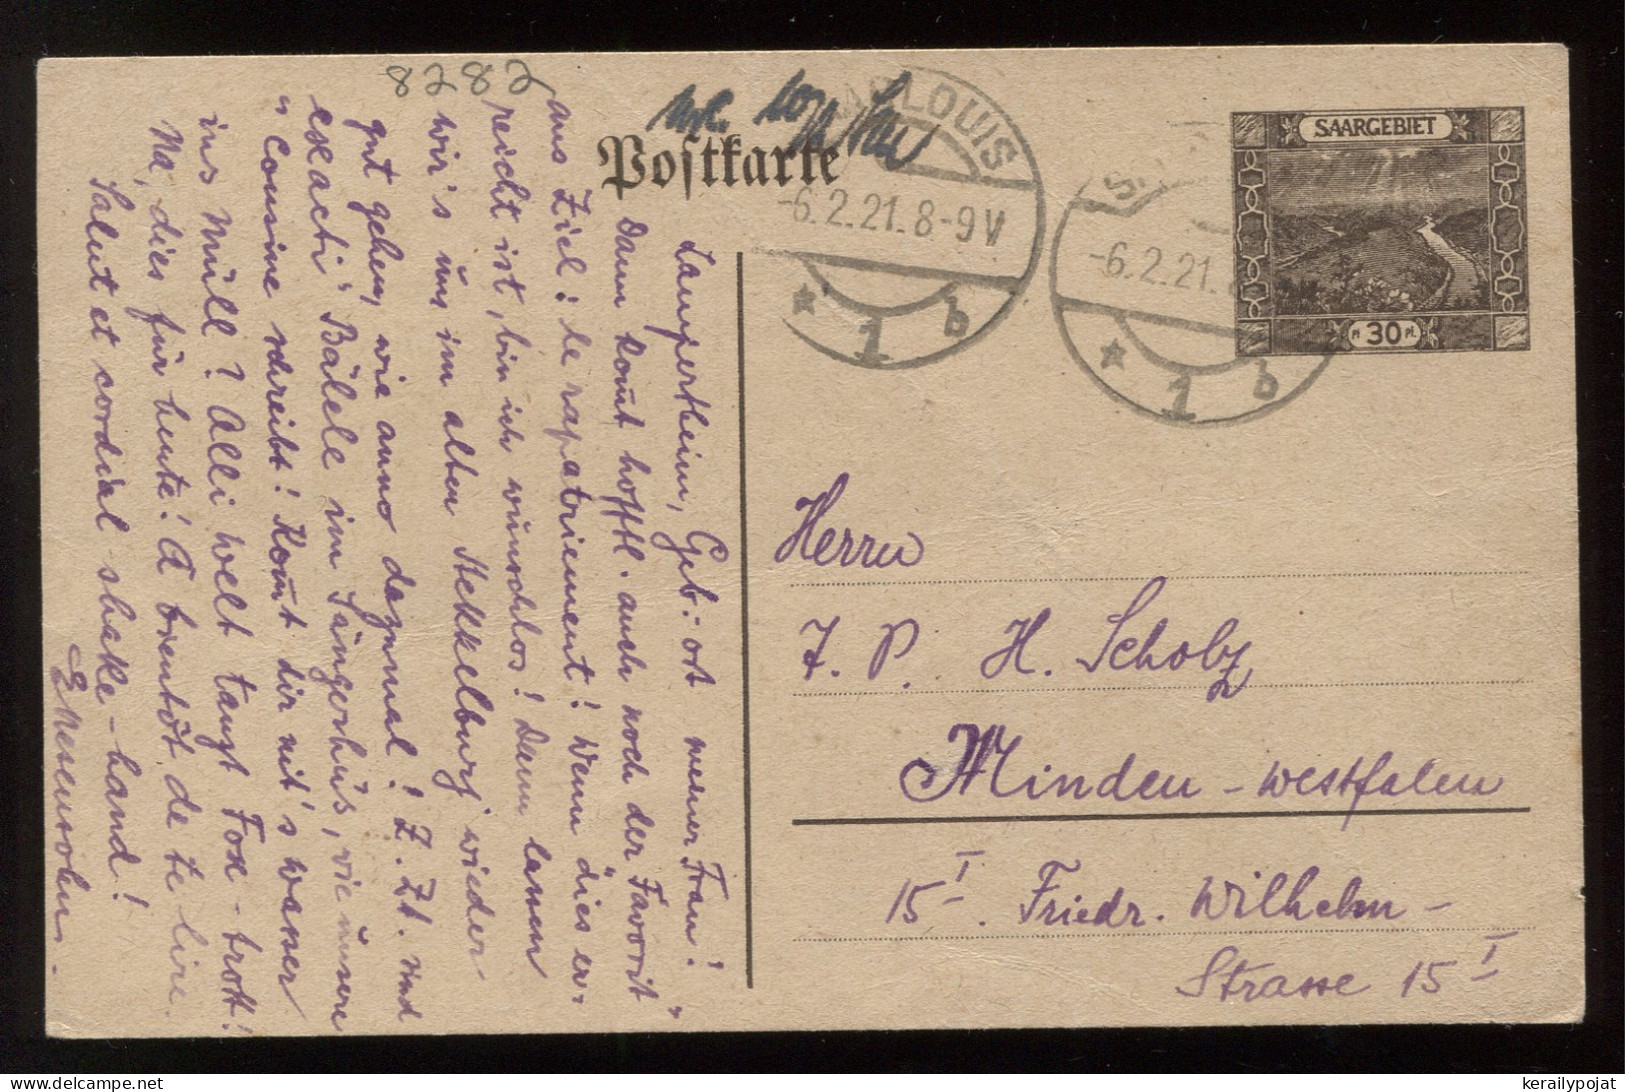 8282
Postkarte
SAARLOUIS
-6.2.21.8-9V
* 1 b
S
-6.2.21.
* 1 b
SAARGEBIET
Pf. 30 Pf.
Lampertheim, Geb.-ort meiner Frau!
Dann kom̄t hoffl. auch noch der Favorit
ans Ziel: le rapatriement! Wenn dies er-
reicht ist, bin ich wunschlos! Dann lassen
wir's uns im alten Mekkelburg wieder
gut gehen, wie anno dazumal! Z. Zt. sind
exacti "Bälele im Sängerhüs, wie unsere
"Cousine schreibt! Kom̄t dir nit's Wasser
ins Müll? Alli Welt tanzt Fox-trott!
Na, dies für heute! A bientôt de te lire.
Salut et cordial shake-hand!
Herrn
J. P. H. Scholz
Minden - Westfalen
15 I. Friedr. Wilhelm -
Strasse 15 I
© kerailypojat